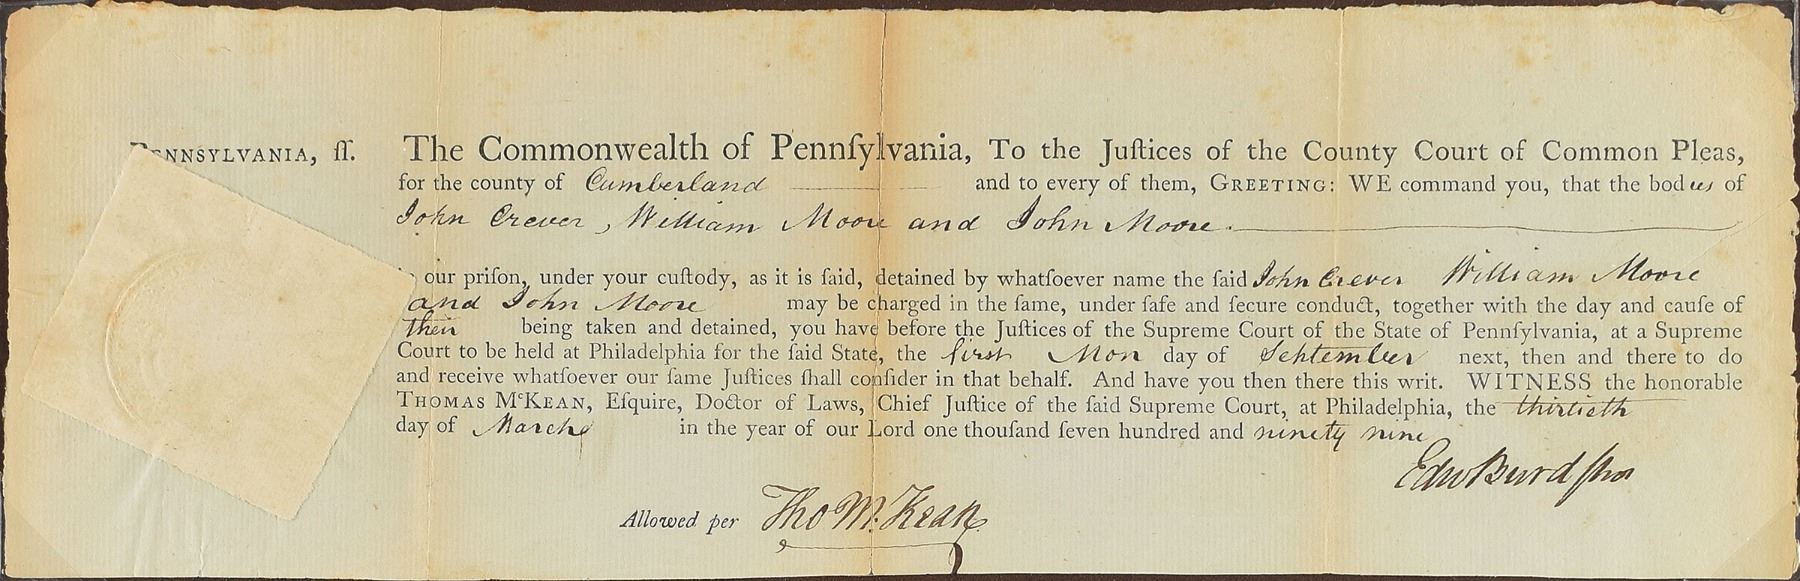 PENNSYLVANIA, ſſ. The Commonwealth of Pennſylvania, To the Juſtices of the County Court of Common Pleas,
for the county of Cumberland and to every of them, GREETING: WE command you, that the bodies of
John Crever, William Moore and John Moore.
our priſon, under your cuſtody, as it is ſaid, detained by whatſoever name the ſaid John Crever William Moore
and John Moore may be charged in the ſame, under ſafe and ſecure conduct, together with the day and cauſe of
their being taken and detained, you have before the Juſtices of the Supreme Court of the State of Pennſylvania, at a Supreme
Court to be held at Philadelphia for the ſaid State, the first Mon day of September next, then and there to do
and receive whatſoever our ſame Juſtices ſhall conſider in that behalf. And have you then there this writ. WITNESS the honorable
THOMAS McKEAN, Eſquire, Doctor of Laws, Chief Juſtice of the ſaid Supreme Court, at Philadelphia, the thirtieth
day of March in the year of our Lord one thouſand ſeven hundred and ninety nine
Edw Burd
Allowed per Tho M:Kean